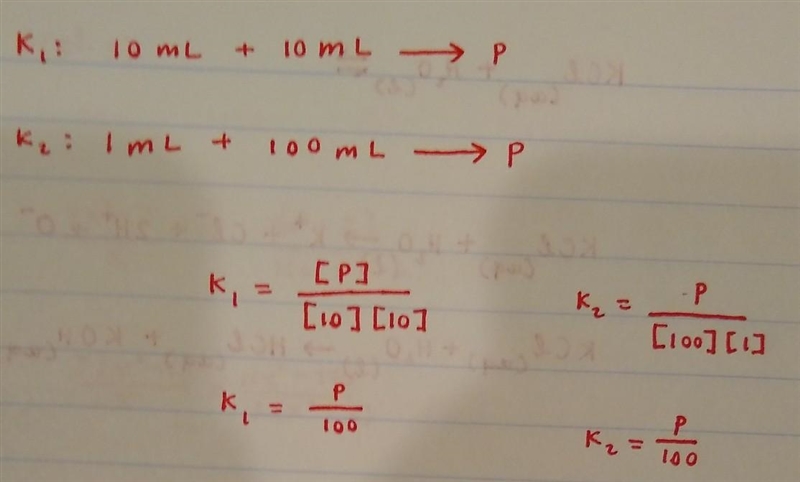 K₁: 10 mL + 10 mL ⟶ P
K₂: 1 mL + 100 mL ⟶ P
K₁ = [P] / [10] [10]
K₂ = P / [100] [1]
K₁ = P / 100
K₂ = P / 100